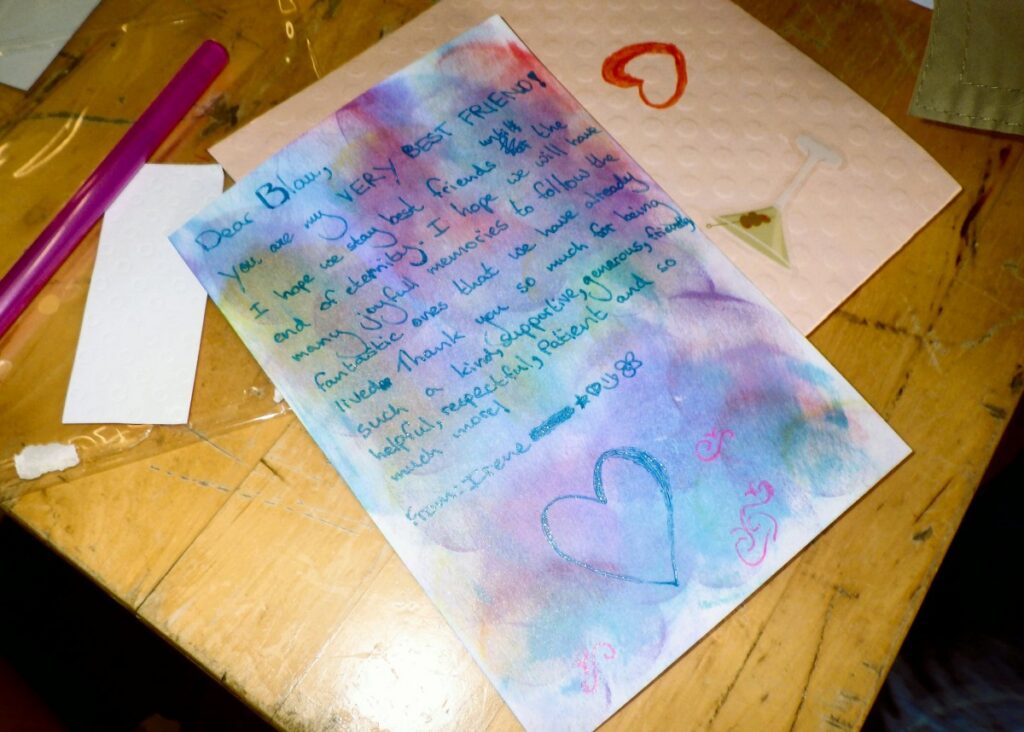 Dear Blau,
You are my VERY BEST FRIEND!
I hope we stay best friends until the
end of eternity. I hope we will have
many joyful memories to follow the
fantastic ones that we have already
lived. Thank you so much for being
such a kind, supportive, generous, friendly,
helpful, respectful, Patient and so
much more!
From: Irene